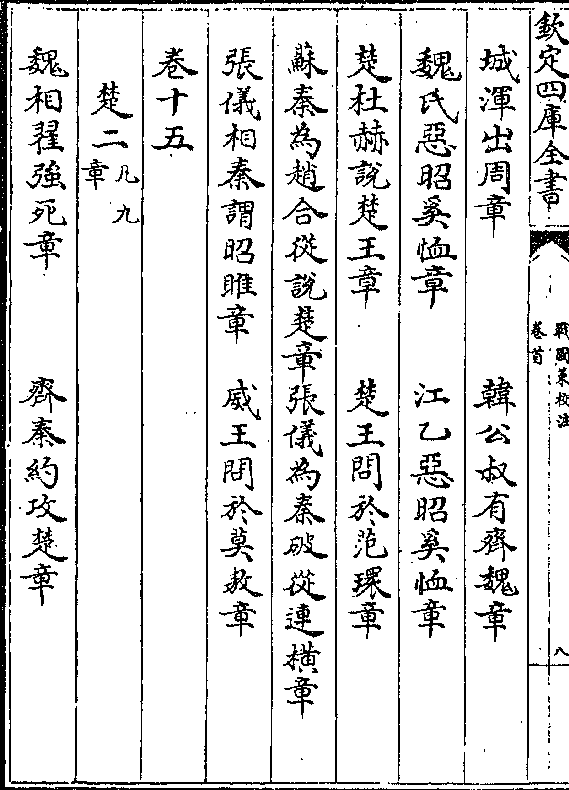 欽定四庫全書
戰國策校注
卷首
八
城渾出周章　韓公叔有齊魏章
魏氏惡昭奚恤章　江乙惡昭奚恤章
楚杜赫說楚王章　楚王問於范環章
蘇秦為趙合從說楚章張儀為秦破從連橫章
張儀相秦謂昭睢章　威王問於莫敖章
卷十五
楚二凡九章
魏相翟強死章　齊秦約攻楚章